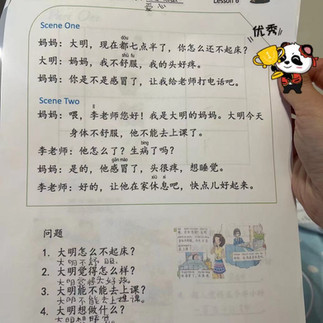 Lesson 6
Scene One
dōu
妈妈：大明，现在都七点半了，你怎么还不起床？
shū fu
大明：妈妈，我不舒服，我的头好疼。
妈妈：你是不是感冒了，让我给老师打电话吧。
Scene Two
妈妈：喂，李老师您好！我是大明的妈妈。大明今天
身体不舒服，他不能去上课了。
bìng
李老师：他怎么了？生病了吗？
gǎn mào
妈妈：是的，他感冒了，头很疼，想睡觉。
xiū xi
李老师：好的，让他在家休息吧，快点儿好起来。
优秀
问题
1. 大明怎么不起床？
大明不舒服。
2. 大明觉得怎么样？
3. 大明能不能去上课？
大明不能去上课。
4. 大明想做什么？